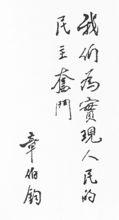 我們為實現人民的
民主奮鬥
章伯鈞